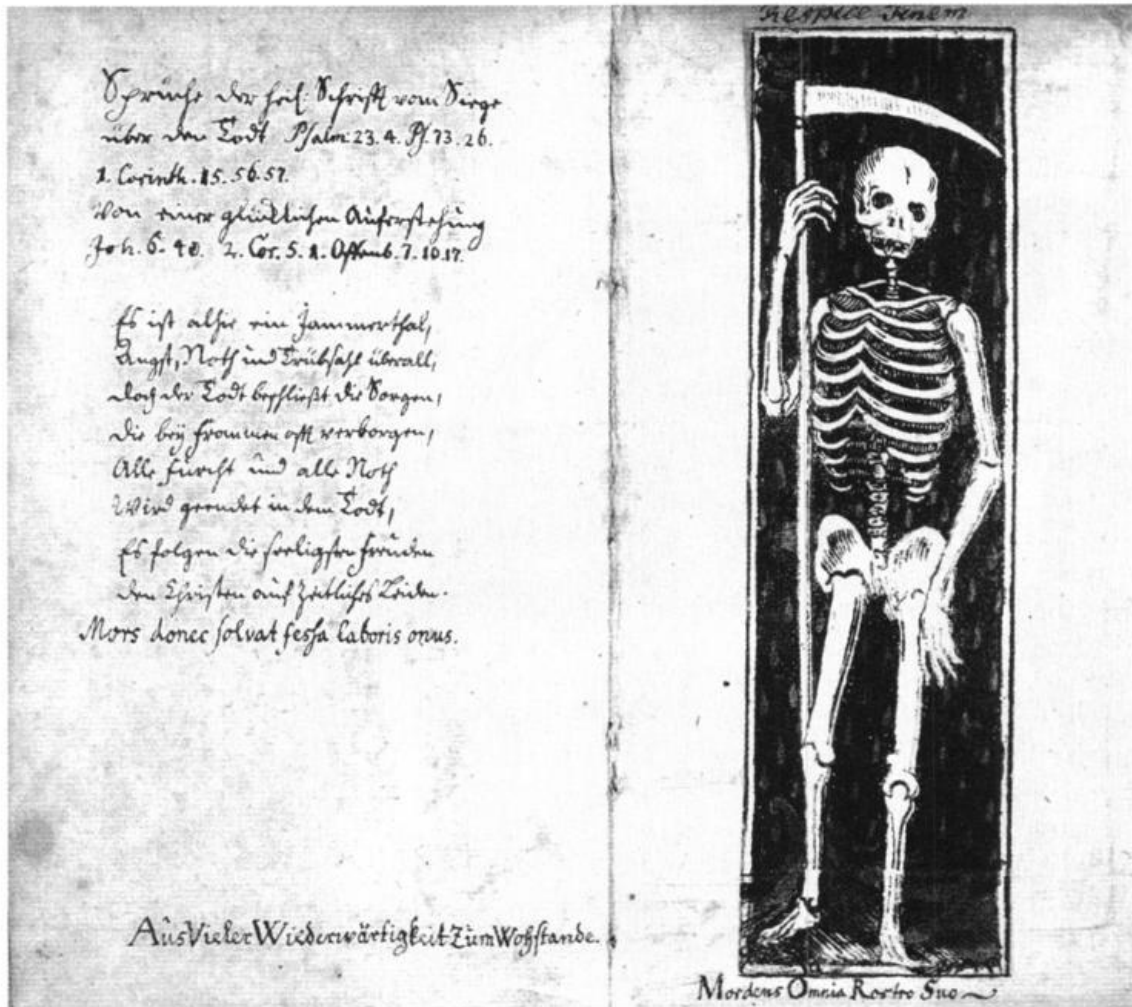 Sprüche der heil. Schrifft vom Siege
über den Todt Psalm. 23. 4. Ps. 73. 26.
1. Corinth. 15. 56. 57.
Von einer glücklichen Auferstehung
Joh. 6. 40. 2. Cor. 5. 1. Offenb. 7. 10. 17.
Es ist alhie ein Jammerthal,
Angst, Noth und Trübsahl überall,
doch der Todt beschließt die Sorgen,
die bey frommen offt verborgen,
Alle Furcht und alle Noth
Wird geendet in dem Todt,
Es folgen die seeligsten freuden
den Christen auf zeitliches Leiden.
Mors donec solvat fessa laboris onus.
Aus Vieler Wiederwärtigkeit Zum Wohlstande.
Respice Finem
Mordens Omnia Rostro Suo